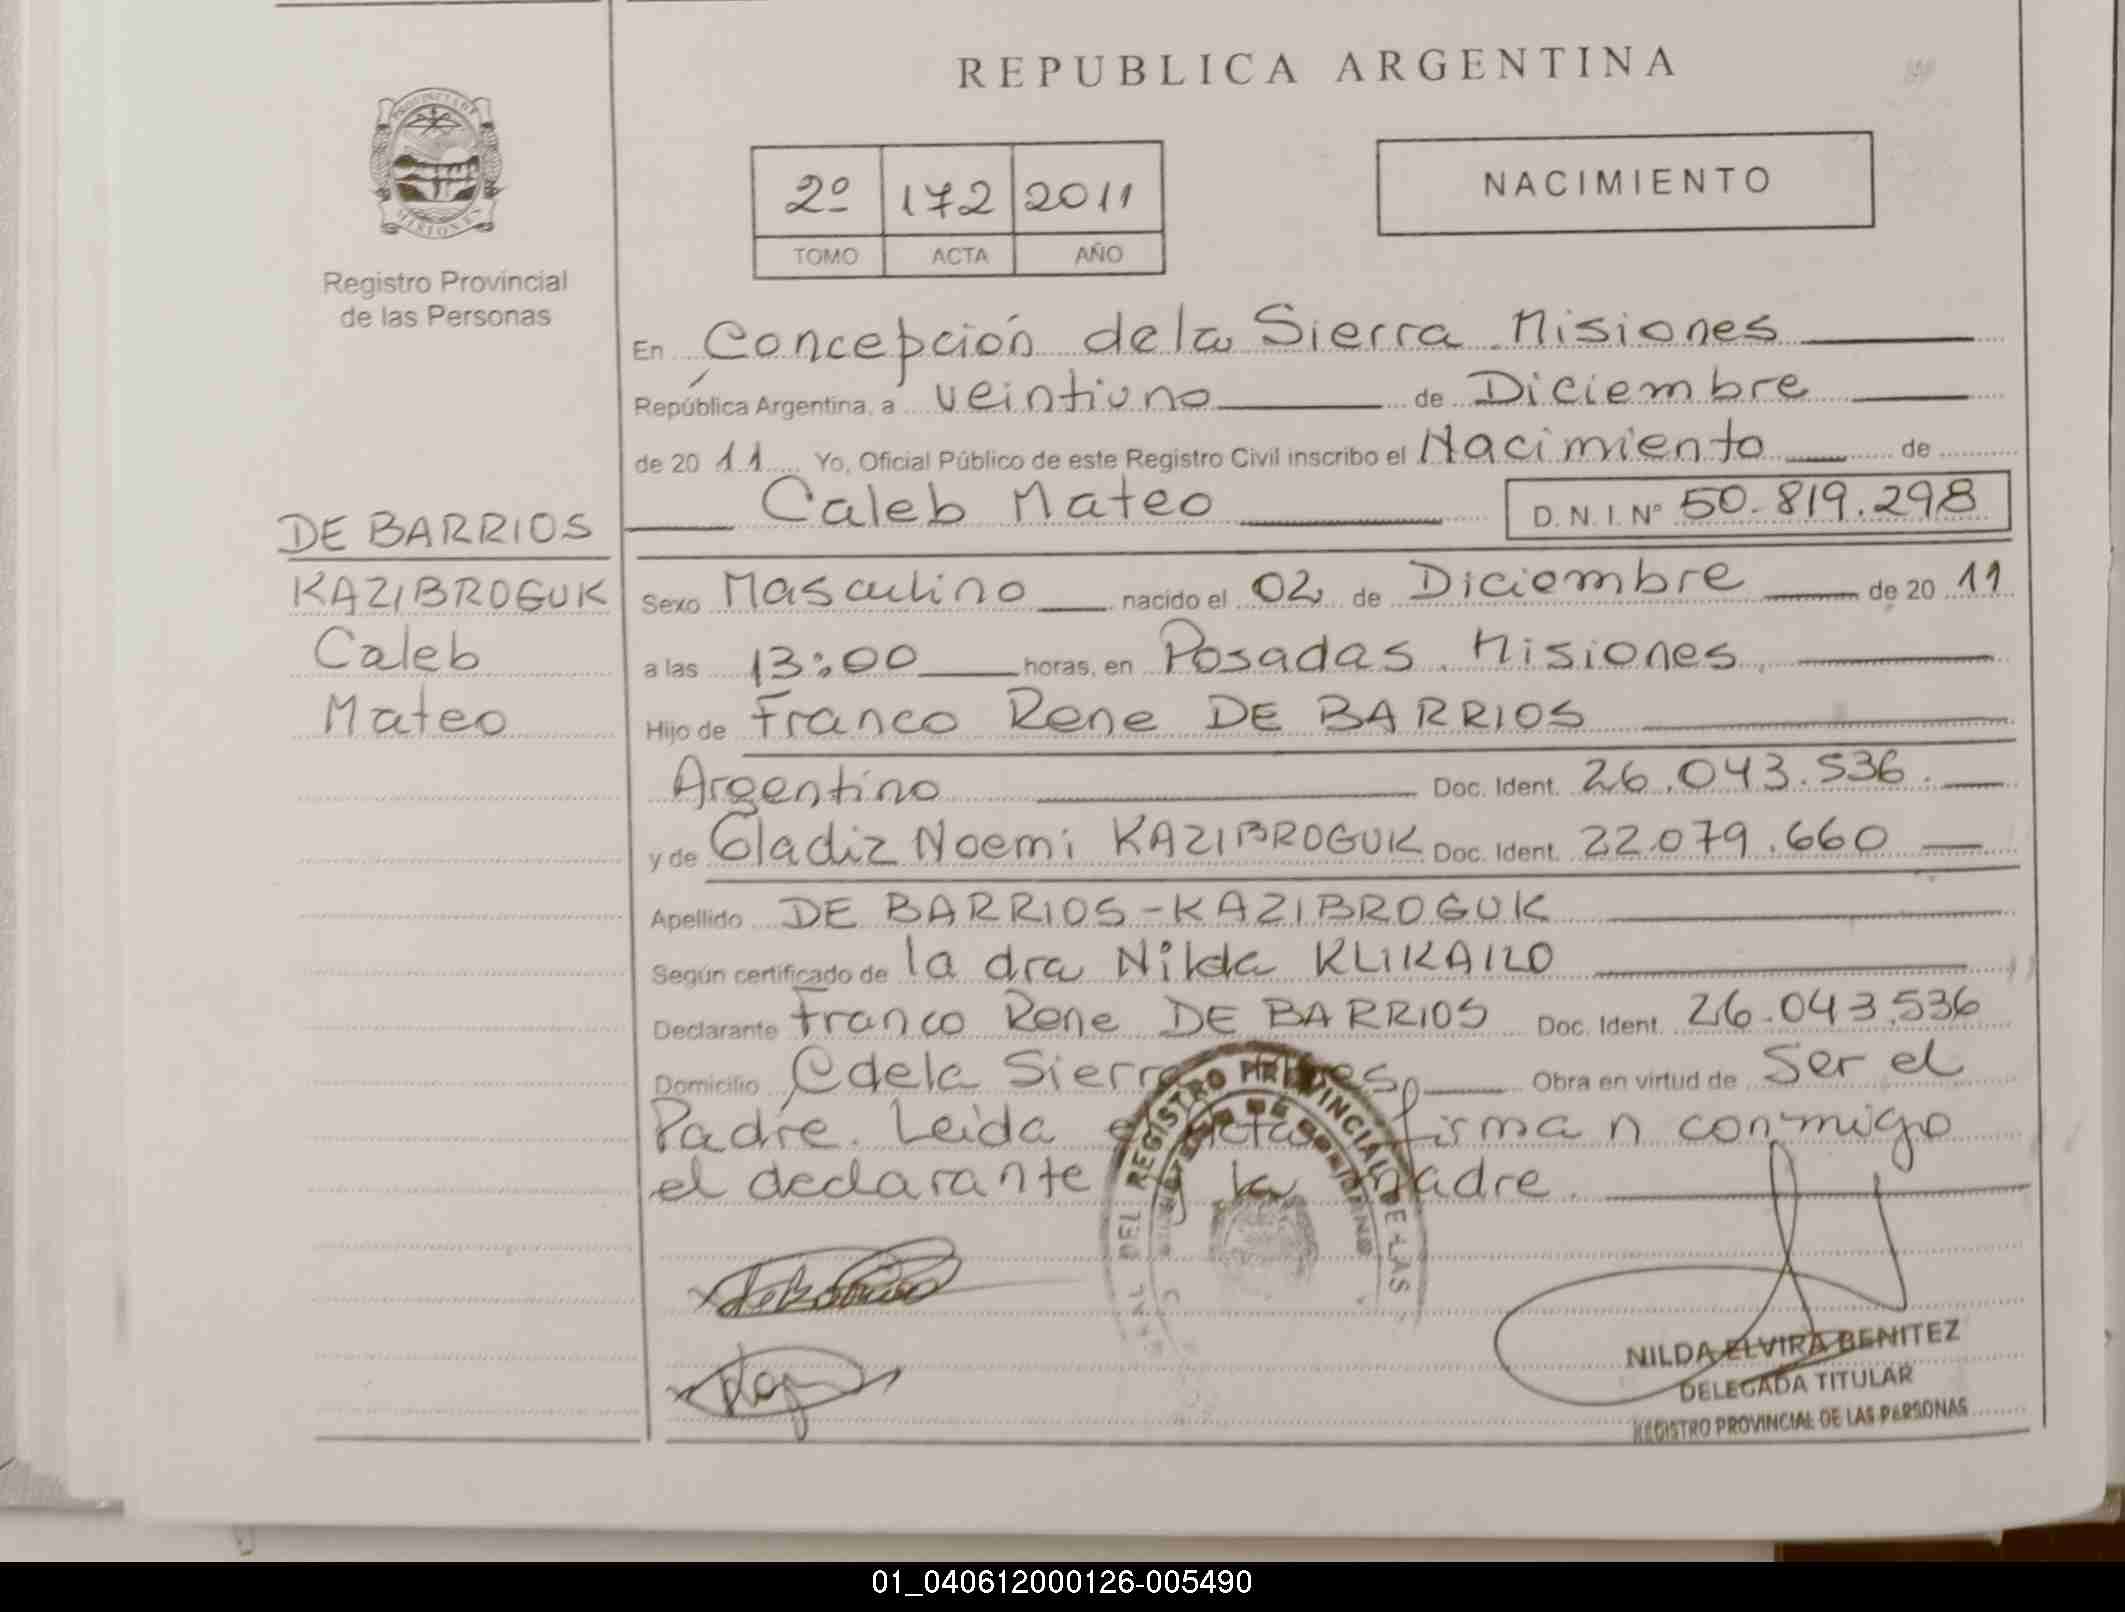 REPUBLICA ARGENTINA
PROVINCIA DE
MISIONES
Registro Provincial
de las Personas
2º 172 2011
TOMO ACTA AÑO
NACIMIENTO
En Concepción de la Sierra Misiones
República Argentina, a veintiuno de Diciembre
de 20 11 Yo, Oficial Público de este Registro Civil inscribo el Nacimiento de
Caleb Mateo D.N.I. Nº 50.819.298
DE BARRIOS
KAZIBROGUK
Caleb
Mateo
Sexo Masculino nacido el 02 de Diciembre de 20 11
a las 13:00 horas, en Posadas. Misiones.
Hijo de Franco Rene DE BARRIOS
Argentino Doc. Ident. 26.043.536.
y de Gladiz Noemi KAZIBROGUK Doc. Ident. 22.079.660
Apellido DE BARRIOS-KAZIBROGUK
Según certificado de la dra Nilda KLIKAILO
Declarante Franco Rene DE BARRIOS Doc. Ident. 26.043.536
Domicilio C de la Sierra Obra en virtud de Ser el
Padre. Leida el Acta firman conmigo
el declarante y la Madre.
REGISTRO PROVINCIAL DE LAS
NILDA ELVIRA BENITEZ
DELEGADA TITULAR
REGISTRO PROVINCIAL DE LAS PERSONAS
01_040612000126-005490